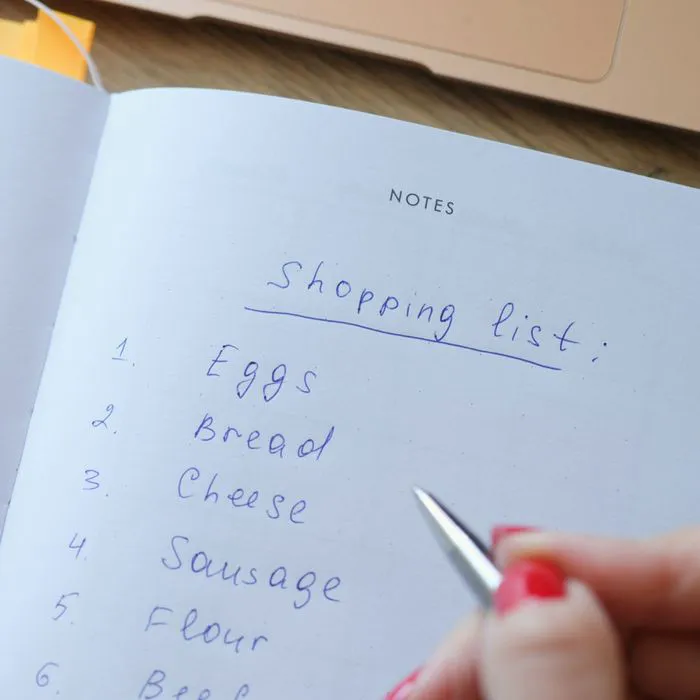 NOTES
Shopping list:
1. Eggs
2. Bread
3. Cheese
4. Sausage
5. Flour
6. Beef